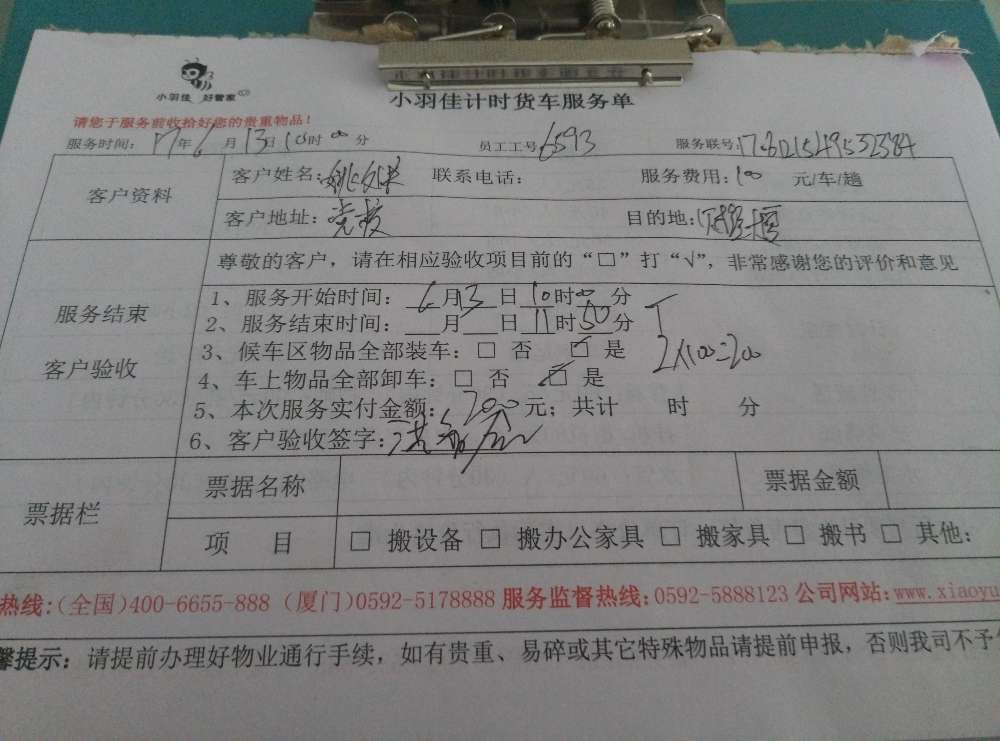 小羽佳 好管家
小羽佳计时货车服务单
请您于服务前收拾好您的贵重物品！
服务时间： 17年6月13日10时00分 员工工号6593 服务联号:
客户资料 客户姓名： 联系电话： 服务费用：100 元/车/趟
客户地址： 党校 目的地：
服务结束 客户验收
尊敬的客户，请在相应验收项目前的“□”打“√”，非常感谢您的评价和意见
1、服务开始时间： 6月13日10时00分
2、服务结束时间： 月 日11时50分
3、候车区物品全部装车：□ 否 ☑ 是 2×100=200
4、车上物品全部卸车：□ 否 ☑ 是
5、本次服务实付金额：200元；共计 时 分
6、客户验收签字：
票据栏 票据名称 票据金额
项 目 □ 搬设备 □ 搬办公家具 □ 搬家具 □ 搬书 □ 其他：
热线:（全国）400-6655-888（厦门）0592-5178888 服务监督热线:0592-5888123 公司网站:www.xiaoyu
馨提示：请提前办理好物业通行手续，如有贵重、易碎或其它特殊物品请提前申报，否则我司不予